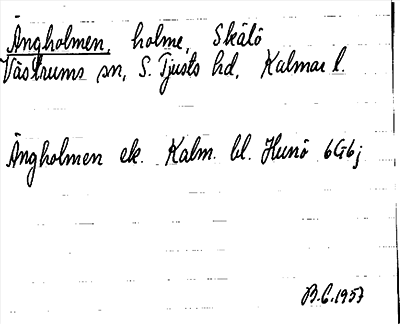 Ängholmen, holme, Skälö
Västrums sn, S. Tjusts hd, Kalmar l.
Ängholmen ek. Kalm. bl. Hunö 6G6j
B.C. 1957